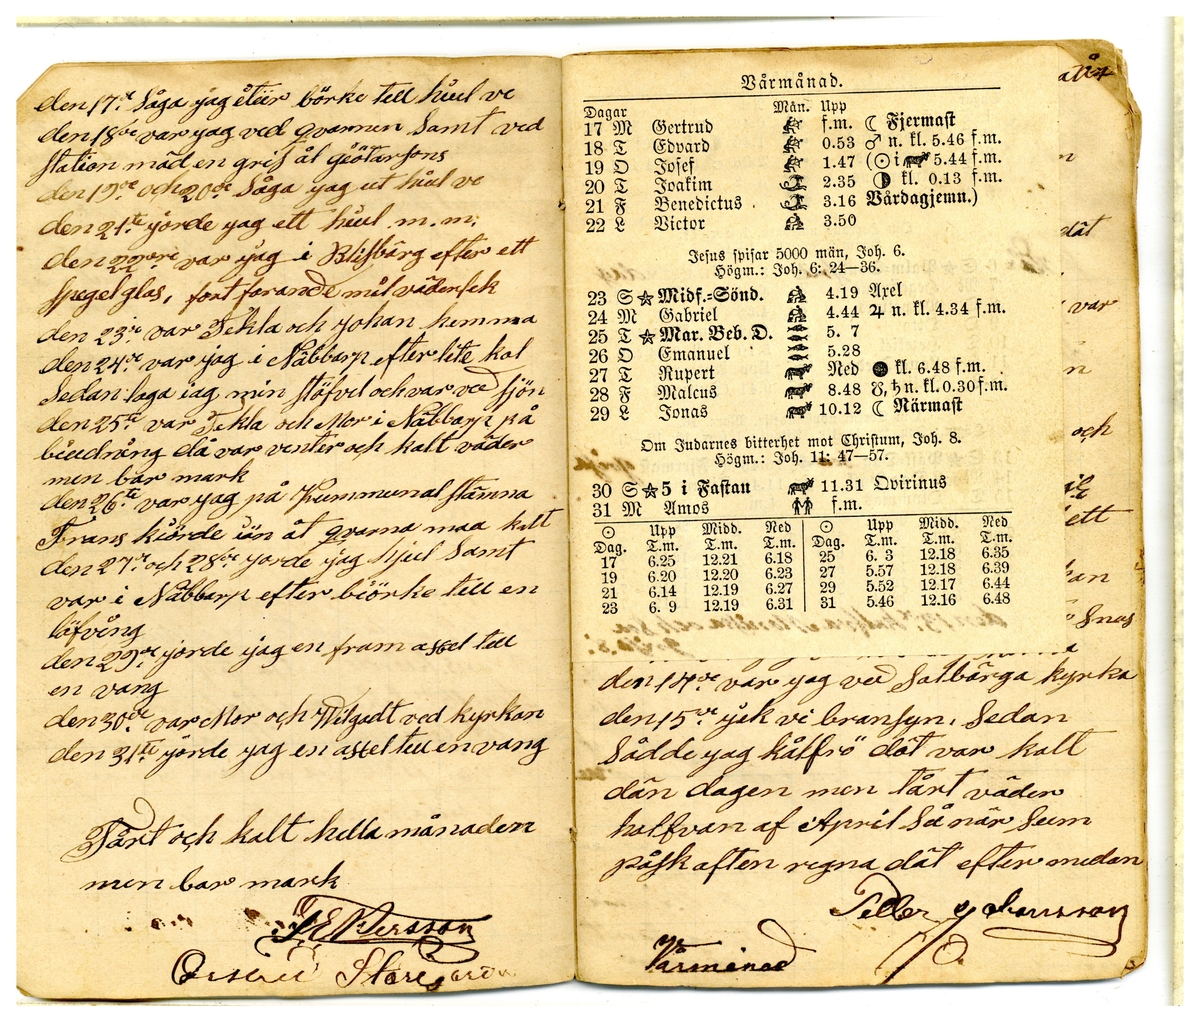 den 17.de Såga jag eteir börke tell hiul ve
den 18de var jag ved qvarnen Samt ved
station mäd en gris åt Giötarsons
den 19.de och 20de Såga jag ut hiul ve
den 21.te jorde jag ett hiul m.m.
den 22dre var jag i Blisbärg efter ett
spegelglas, fortfarande milväderlek
den 23.je var Tekla och Johan hemma
den 24.de var jag i Näbbarp efter lite kol
Sedan laga jag min stöfvel och var ved sjön
den 25.te var Tekla och Mor i Näbbarp på
biudning då var venter och kalt väder
men bar mark
den 26.te var jag på Kummunalstämna
Frans kiörde åt qvarna maa kalt
den 27.de och 28de jorde jag hjul Samt
var i Näbbarp efter biörke tell en
löfvång
den 29.de jorde jag en fram assel tell
en vang
den 30.de var Mor och Hilgadt ved kyrkan
den 31.te jorde jag en assel tell en vang
Tårt och kalt hella månaden
men bar mark
Persson
Vårmånad.
Dagar Mån. Upp
17 M Gertrud f.m. ☾ Fjermast
18 T Edvard 0.53 ♂ n. kl. 5.46 f.m.
19 O Josef 1.47 (☉ i ♈ 5.44 f.m.
20 T Joakim 2.35 ◑ kl. 0.13 f.m.
21 F Benedictus 3.16 Vårdagjemn.)
22 L Victor 3.50
Jesus spisar 5000 män, Joh. 6.
Högm.: Joh. 6: 24—36.
23 S ☆ Midf.=Sönd. 4.19 Axel
24 M Gabriel 4.44 ♃ n. kl. 4.34 f.m.
25 T ☆ Mar. Beb. D. 5. 7
26 O Emanuel 5.28
27 T Rupert Ned ● kl. 6.48 f.m.
28 F Malcus 8.48 ☋, ♄ n. kl. 0.30 f.m.
29 L Jonas 10.12 ☾ Närmast
Om Judarnes bitterhet mot Christum, Joh. 8.
Högm.: Joh. 11: 47—57.
30 S ☆ 5 i Fastan 11.31 Qvirinus
31 M Amos f.m.
☉ Upp Midd. Ned ☉ Upp Midd. Ned
Dag. T.m. T.m. T.m. Dag. T.m. T.m. T.m.
17 6.25 12.21 6.18 25 6. 3 12.18 6.35
19 6.20 12.20 6.23 27 5.57 12.18 6.39
21 6.14 12.19 6.27 29 5.52 12.17 6.44
23 6. 9 12.19 6.31 31 5.46 12.16 6.48
dät
var
och
ett
den 14de var jag ved Salbärga kyrka
den 15.de jek vi bransyn. Sedan
Sådde jag kålfrö dät var kalt
dän dagen men tårt väder
halfvan af April Så när Som
påskaften regna dät efter medan
Petter Johansson
Vårmånad